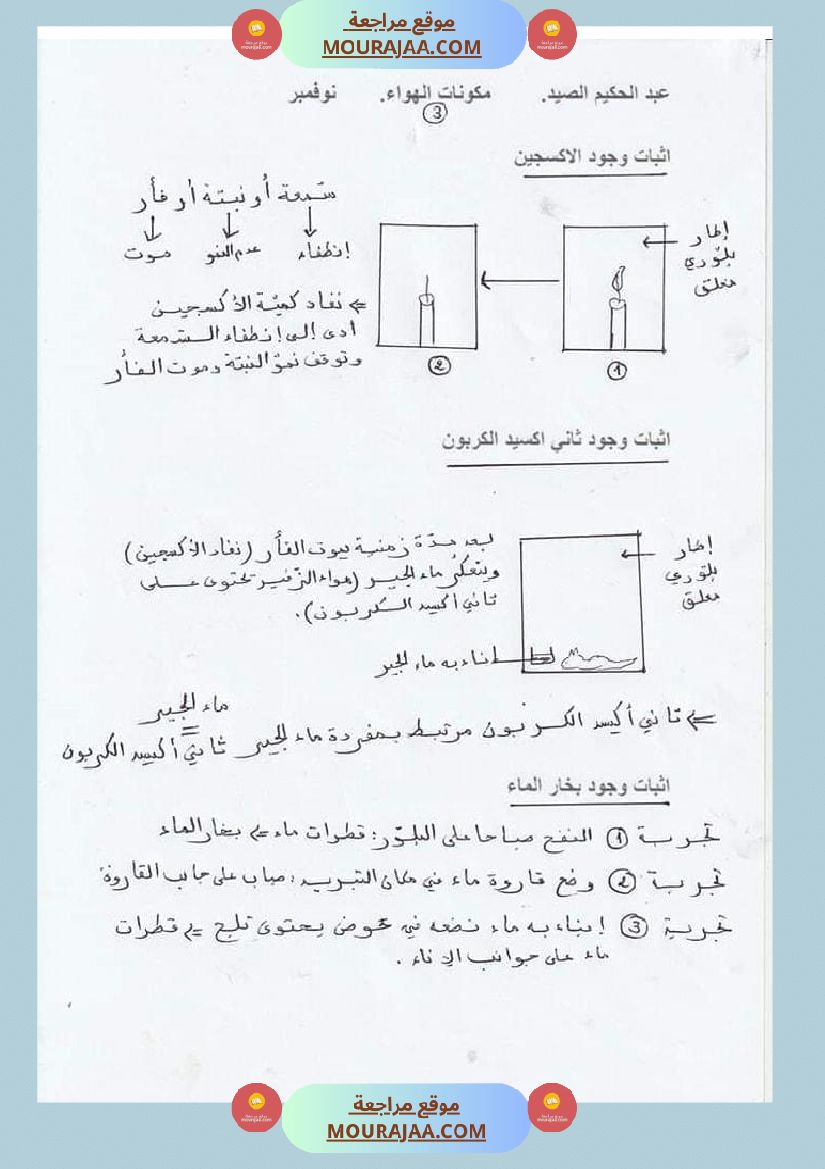 موقع مراجعة
MOURAJAA.COM
عبد الحكيم الصيد. مكونات الهواء. نوفمبر
3
اثبات وجود الاكسجين
شمعة أو نبتة أو فأر
إنطفاء عدم النمو موت
إطار
بلّوري
مغلق
⇐ نفاد كميّة الأكسجين
أدى إلى إنطفاء الشمعة
وتوقف نموّ النبتة وموت الفأر
1
2
اثبات وجود ثاني اكسيد الكربون
إطار
بلوري
مغلق
بعد مدّة زمنية يموت الفأر (نفاد الأكسجين)
ويتعكّر ماء الجير (هواء الزّفير يحتوي على
ثاني أكسيد الكربون).
إناء به ماء الجير
⇐ ثاني أكسيد الكربون مرتبط بمفردة ماء الجير
ماء الجير
=
ثاني أكسيد الكربون
اثبات وجود بخار الماء
تجربة 1 النفخ صباحا على البلّور: قطرات ماء ⇐ بخار الماء
تجربة 2 وضع قارورة ماء في مكان التبريد: ضباب على جانب القارورة
تجربة 3 إناء به ماء نضعه في حوض يحتوي ثلج ⇐ قطرات
ماء على جوانب الإناء.
موقع مراجعة
MOURAJAA.COM